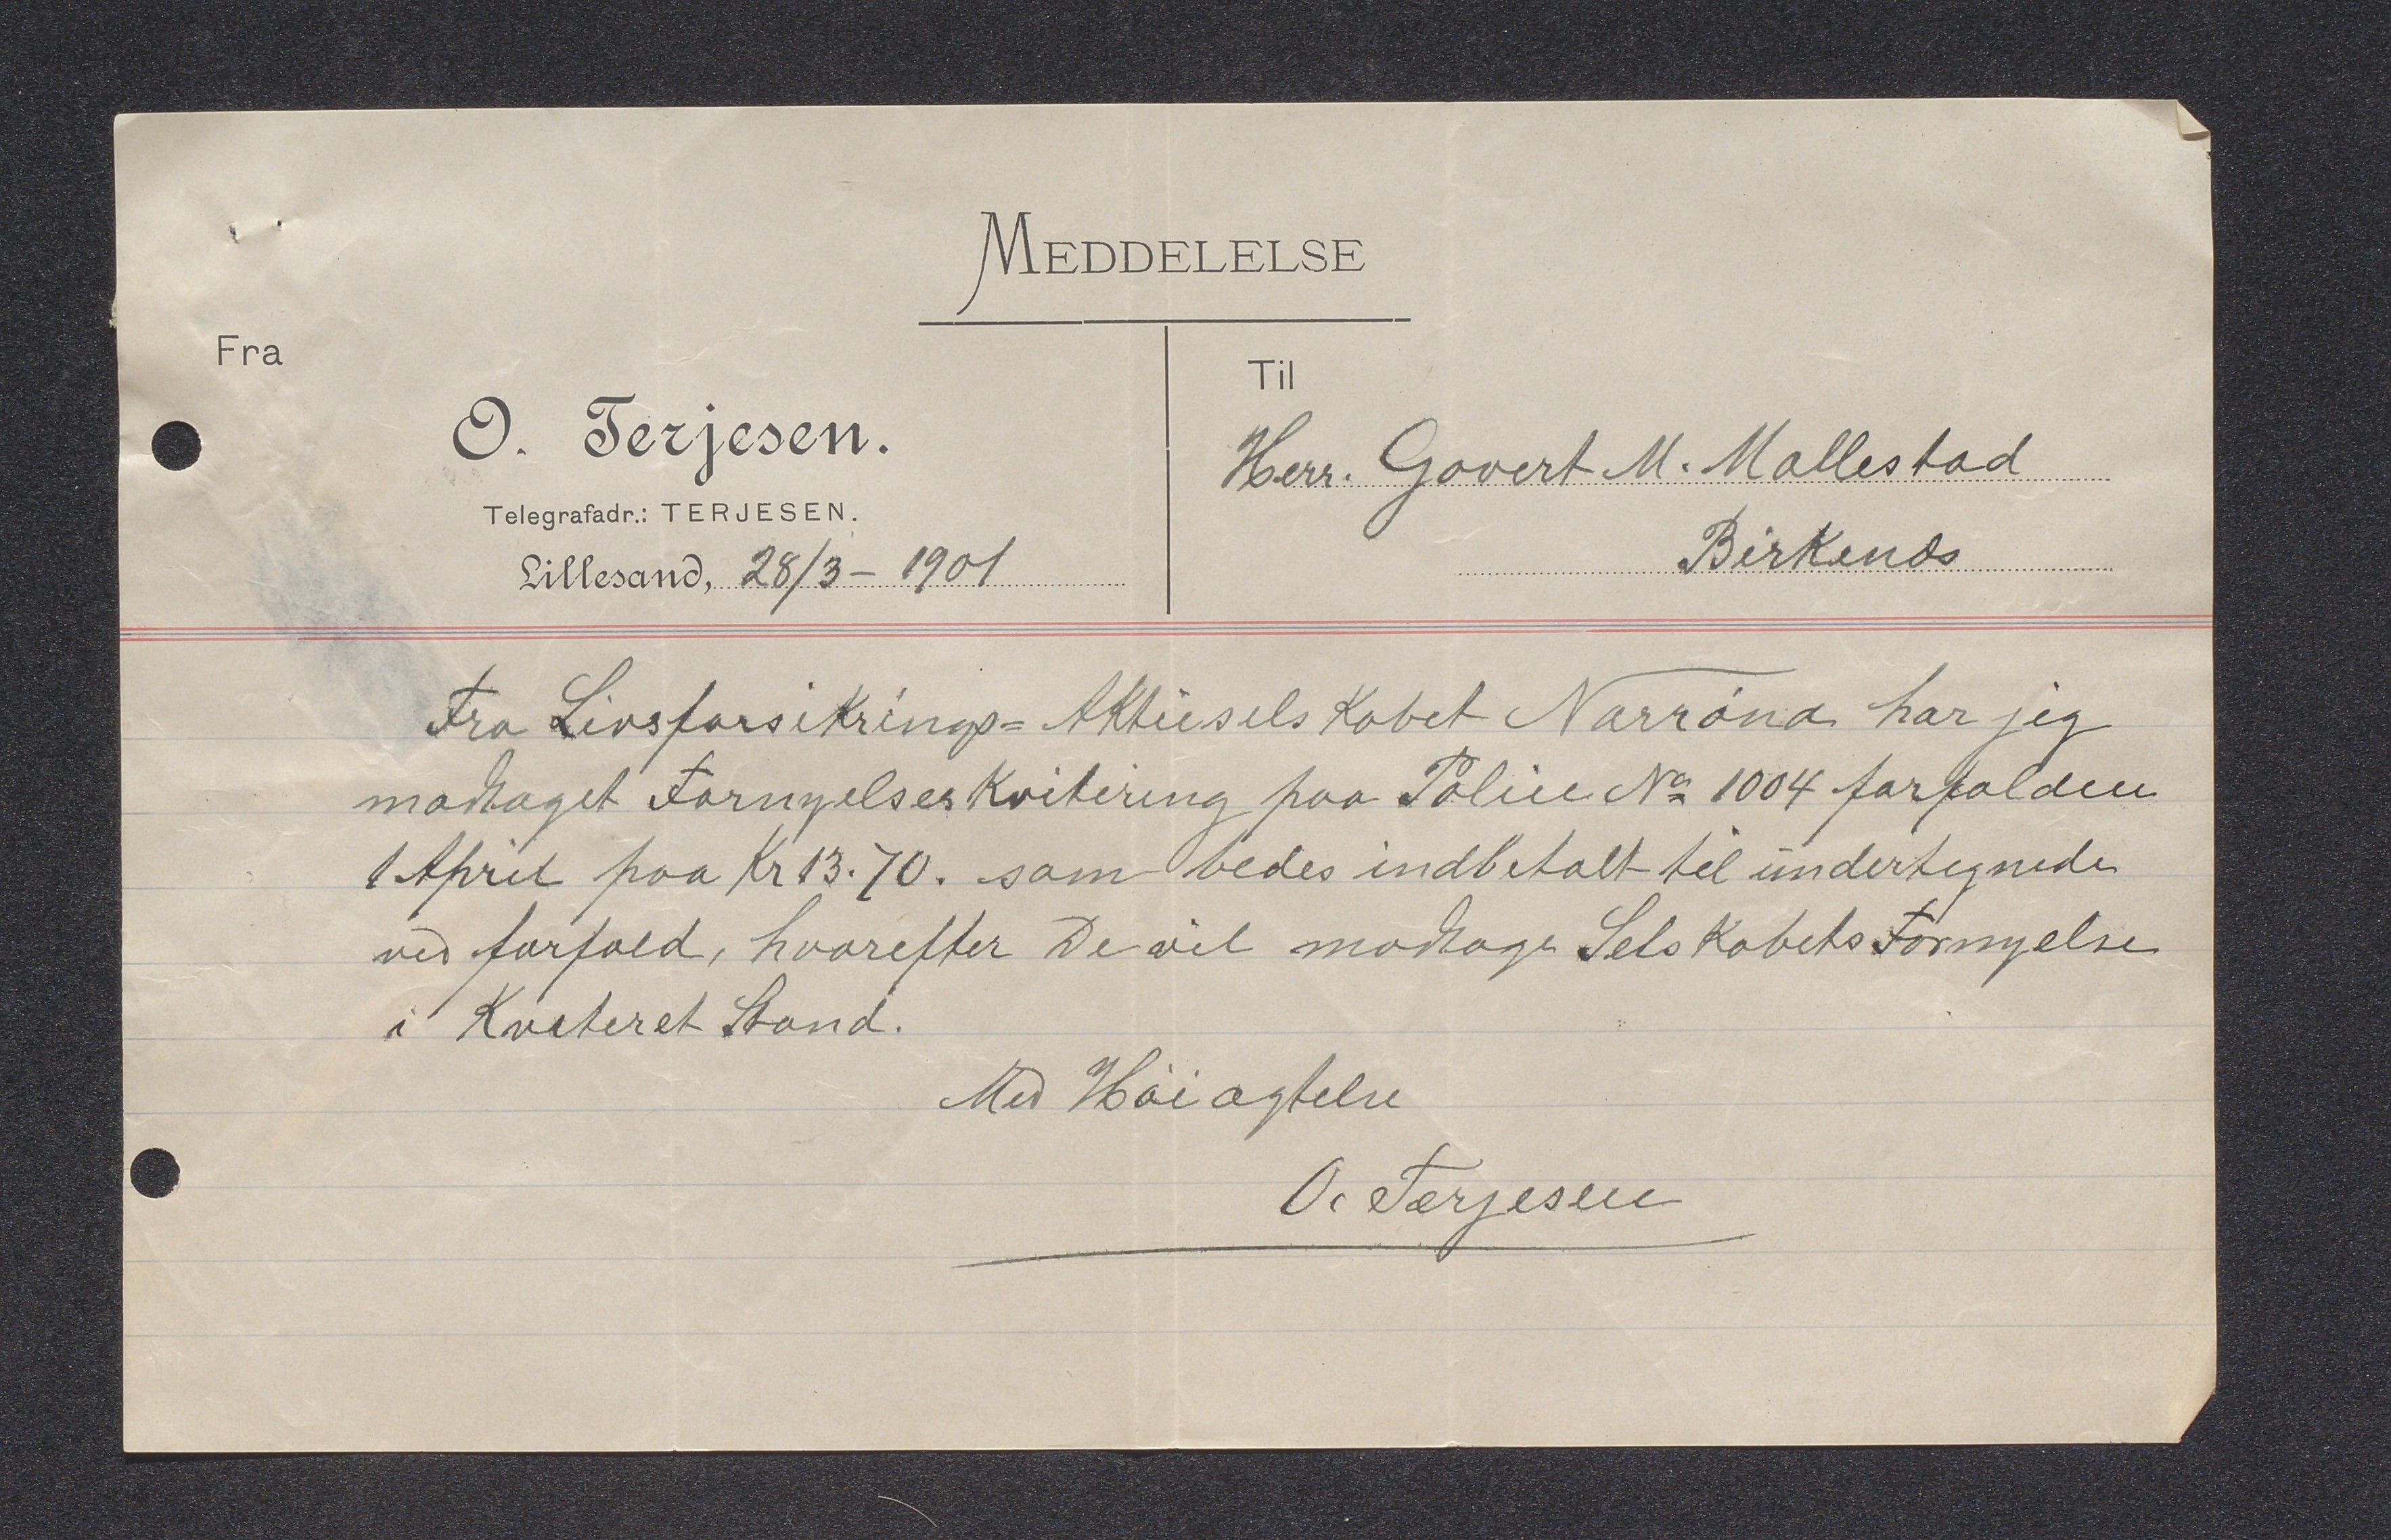 MEDDELELSE
Fra
O. Terjesen.
Telegrafadr.: TERJESEN.
Lillesand, 28/3 - 1901
Til
Herr. Govert M. Mollestad
Birkenæs
Fra Livsforsikrings= Aktieselskabet Norröna har jeg
modtaget Fornyelseskvitering paa Police No 1004 forfalden
1 April paa Kr 13.70. som bedes indbetalt til undertegnede
ved forfald, hvorefter De vil modtage Selskabets Fornyelse
i Kviteret Stand.
Med Höiagtelse
O. Terjesen